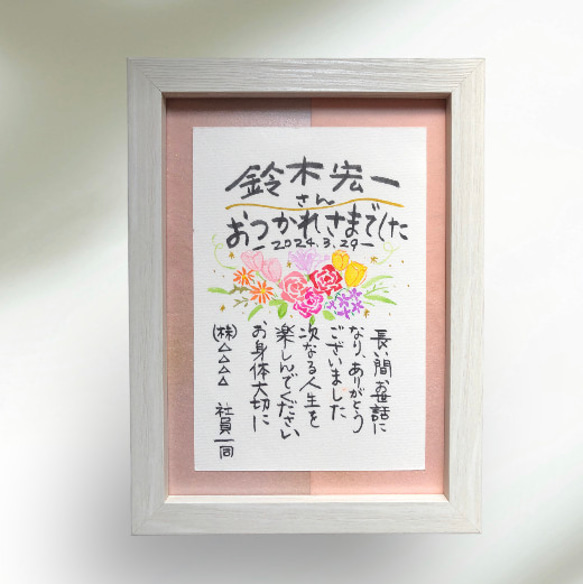 鈴木宏一
さん
おつかれさまでした
－2024.3.29－
長い間お世話に
なり、ありがとう
ございました
次なる人生を
楽しんでください
お身体大切に
(株)△△△△ 社員一同